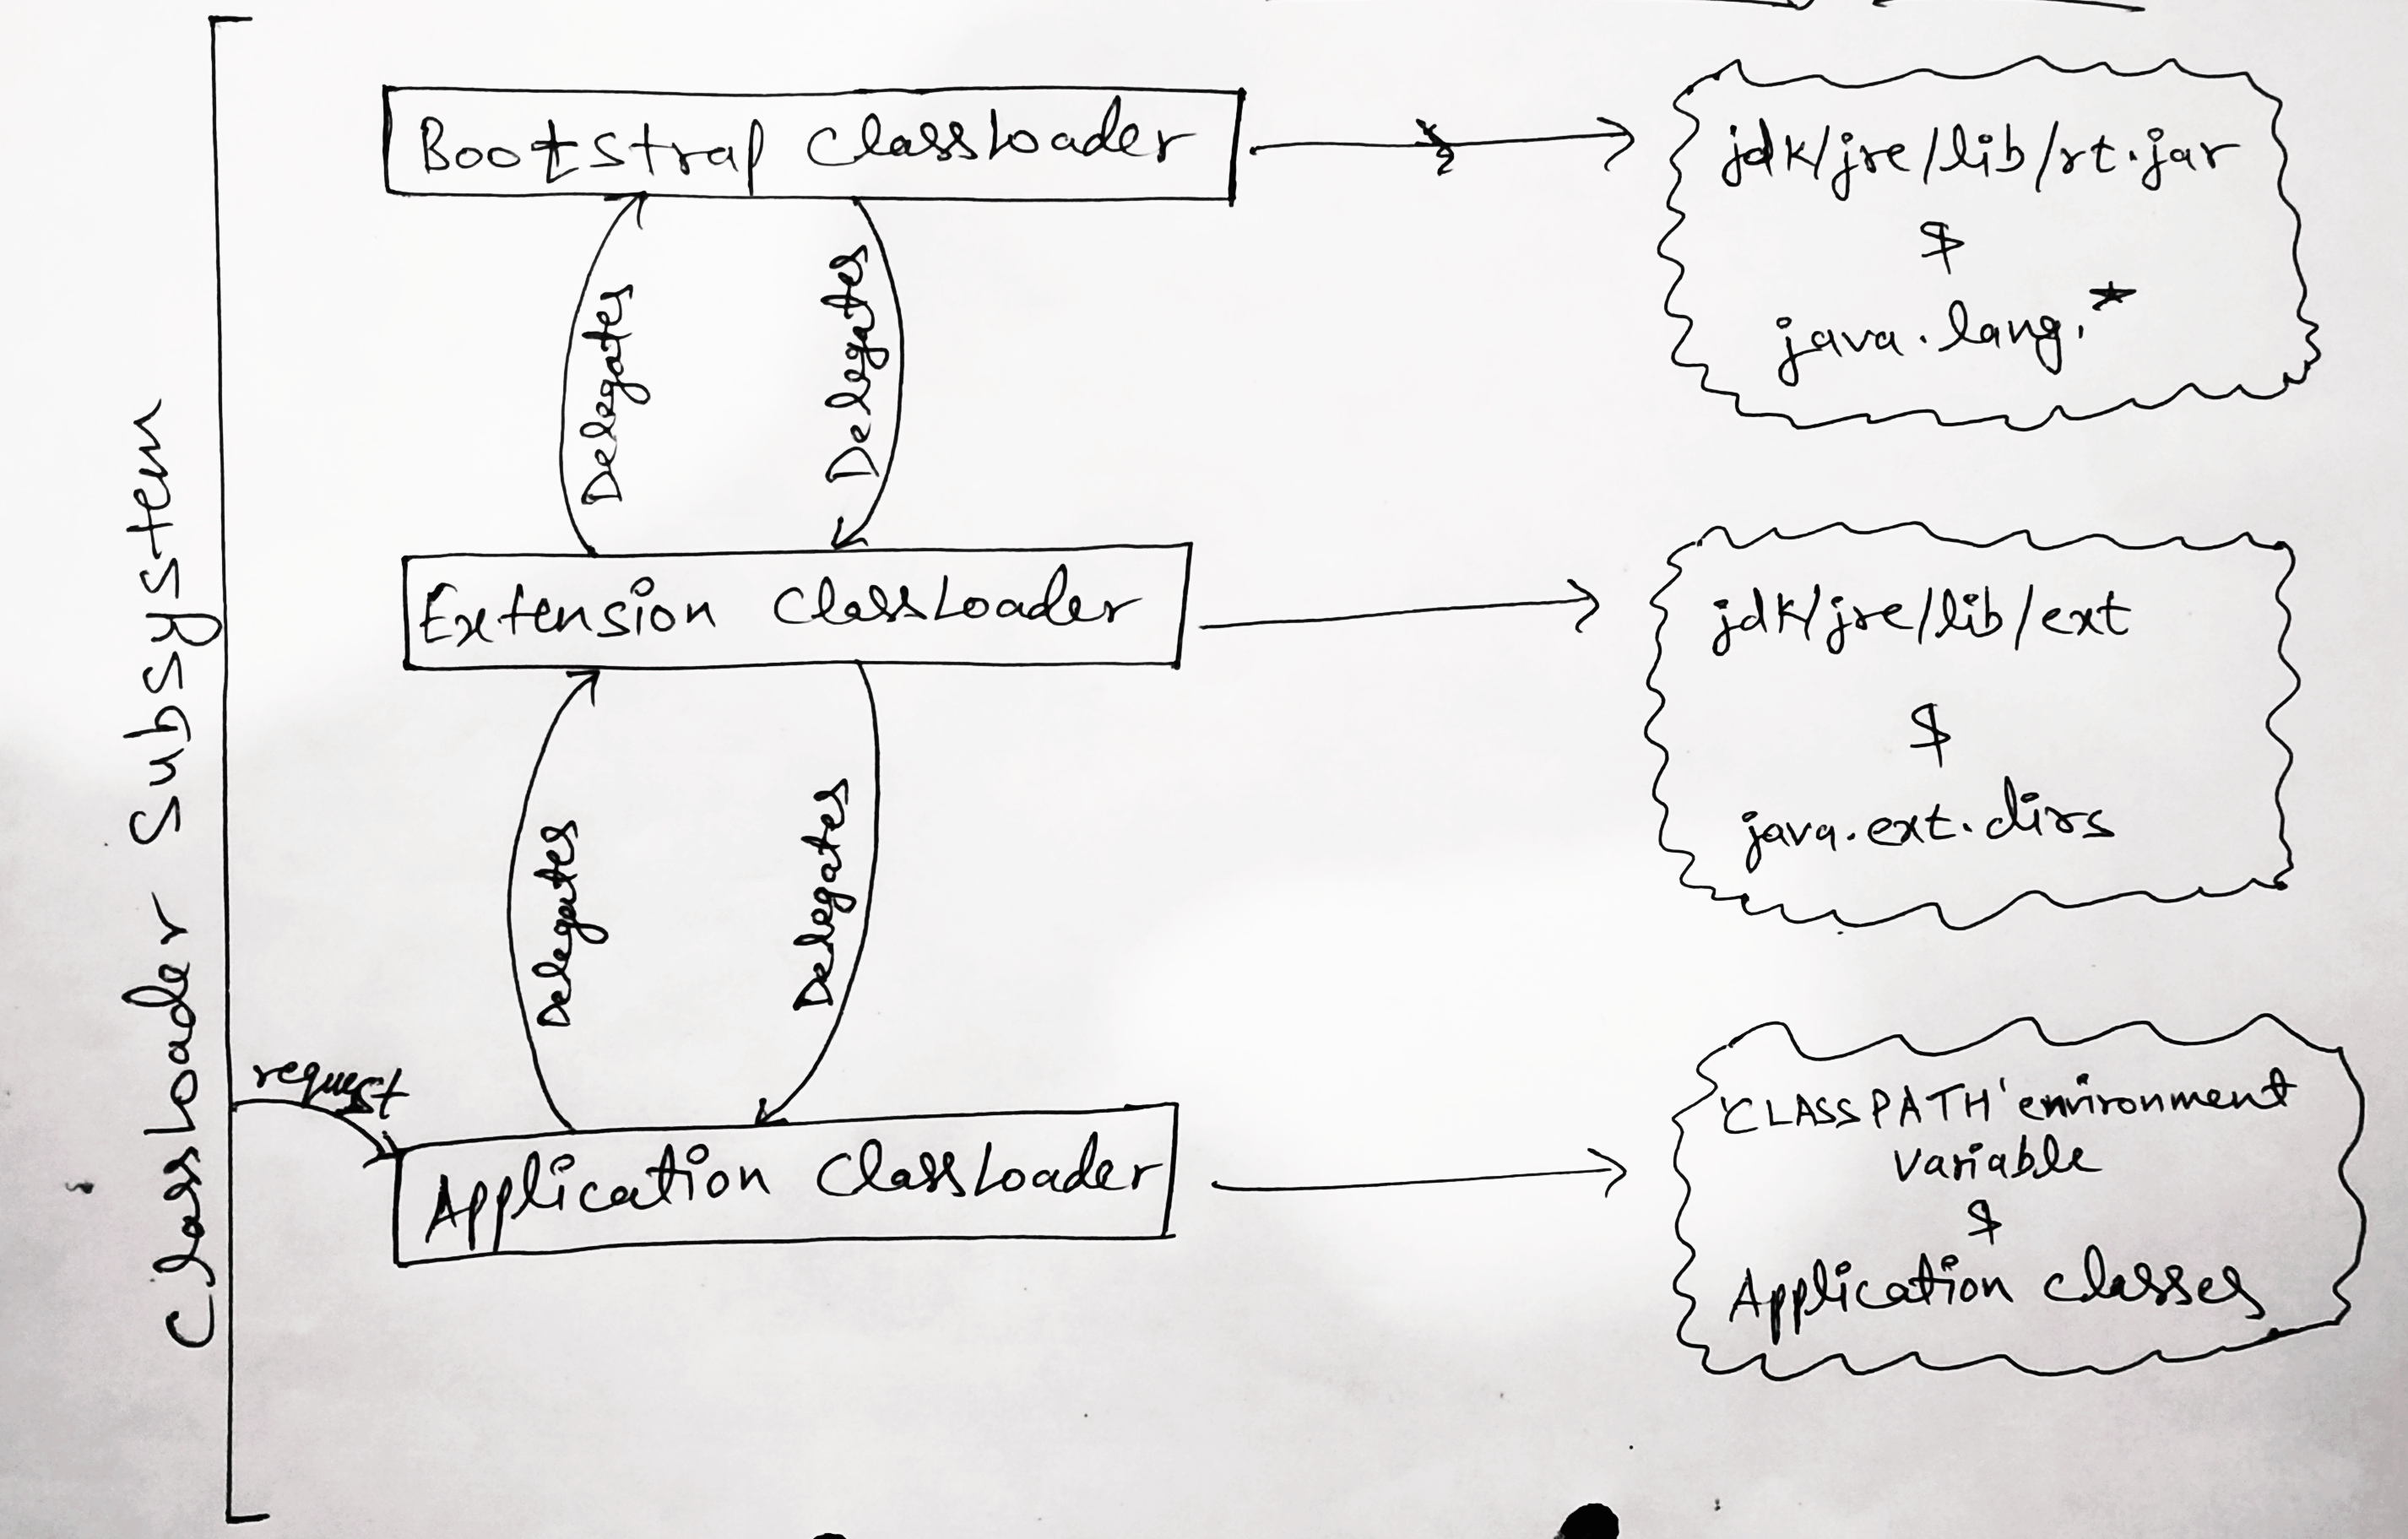 ClassLoader Subsystem
Bootstrap ClassLoader
jdk/jre/lib/rt.jar
&
java.lang.*
Delegates
Delegates
Extension ClassLoader
jdk/jre/lib/ext
&
java.ext.dirs
Delegates
Delegates
request
Application ClassLoader
'CLASSPATH' environment
variable
&
Application classes